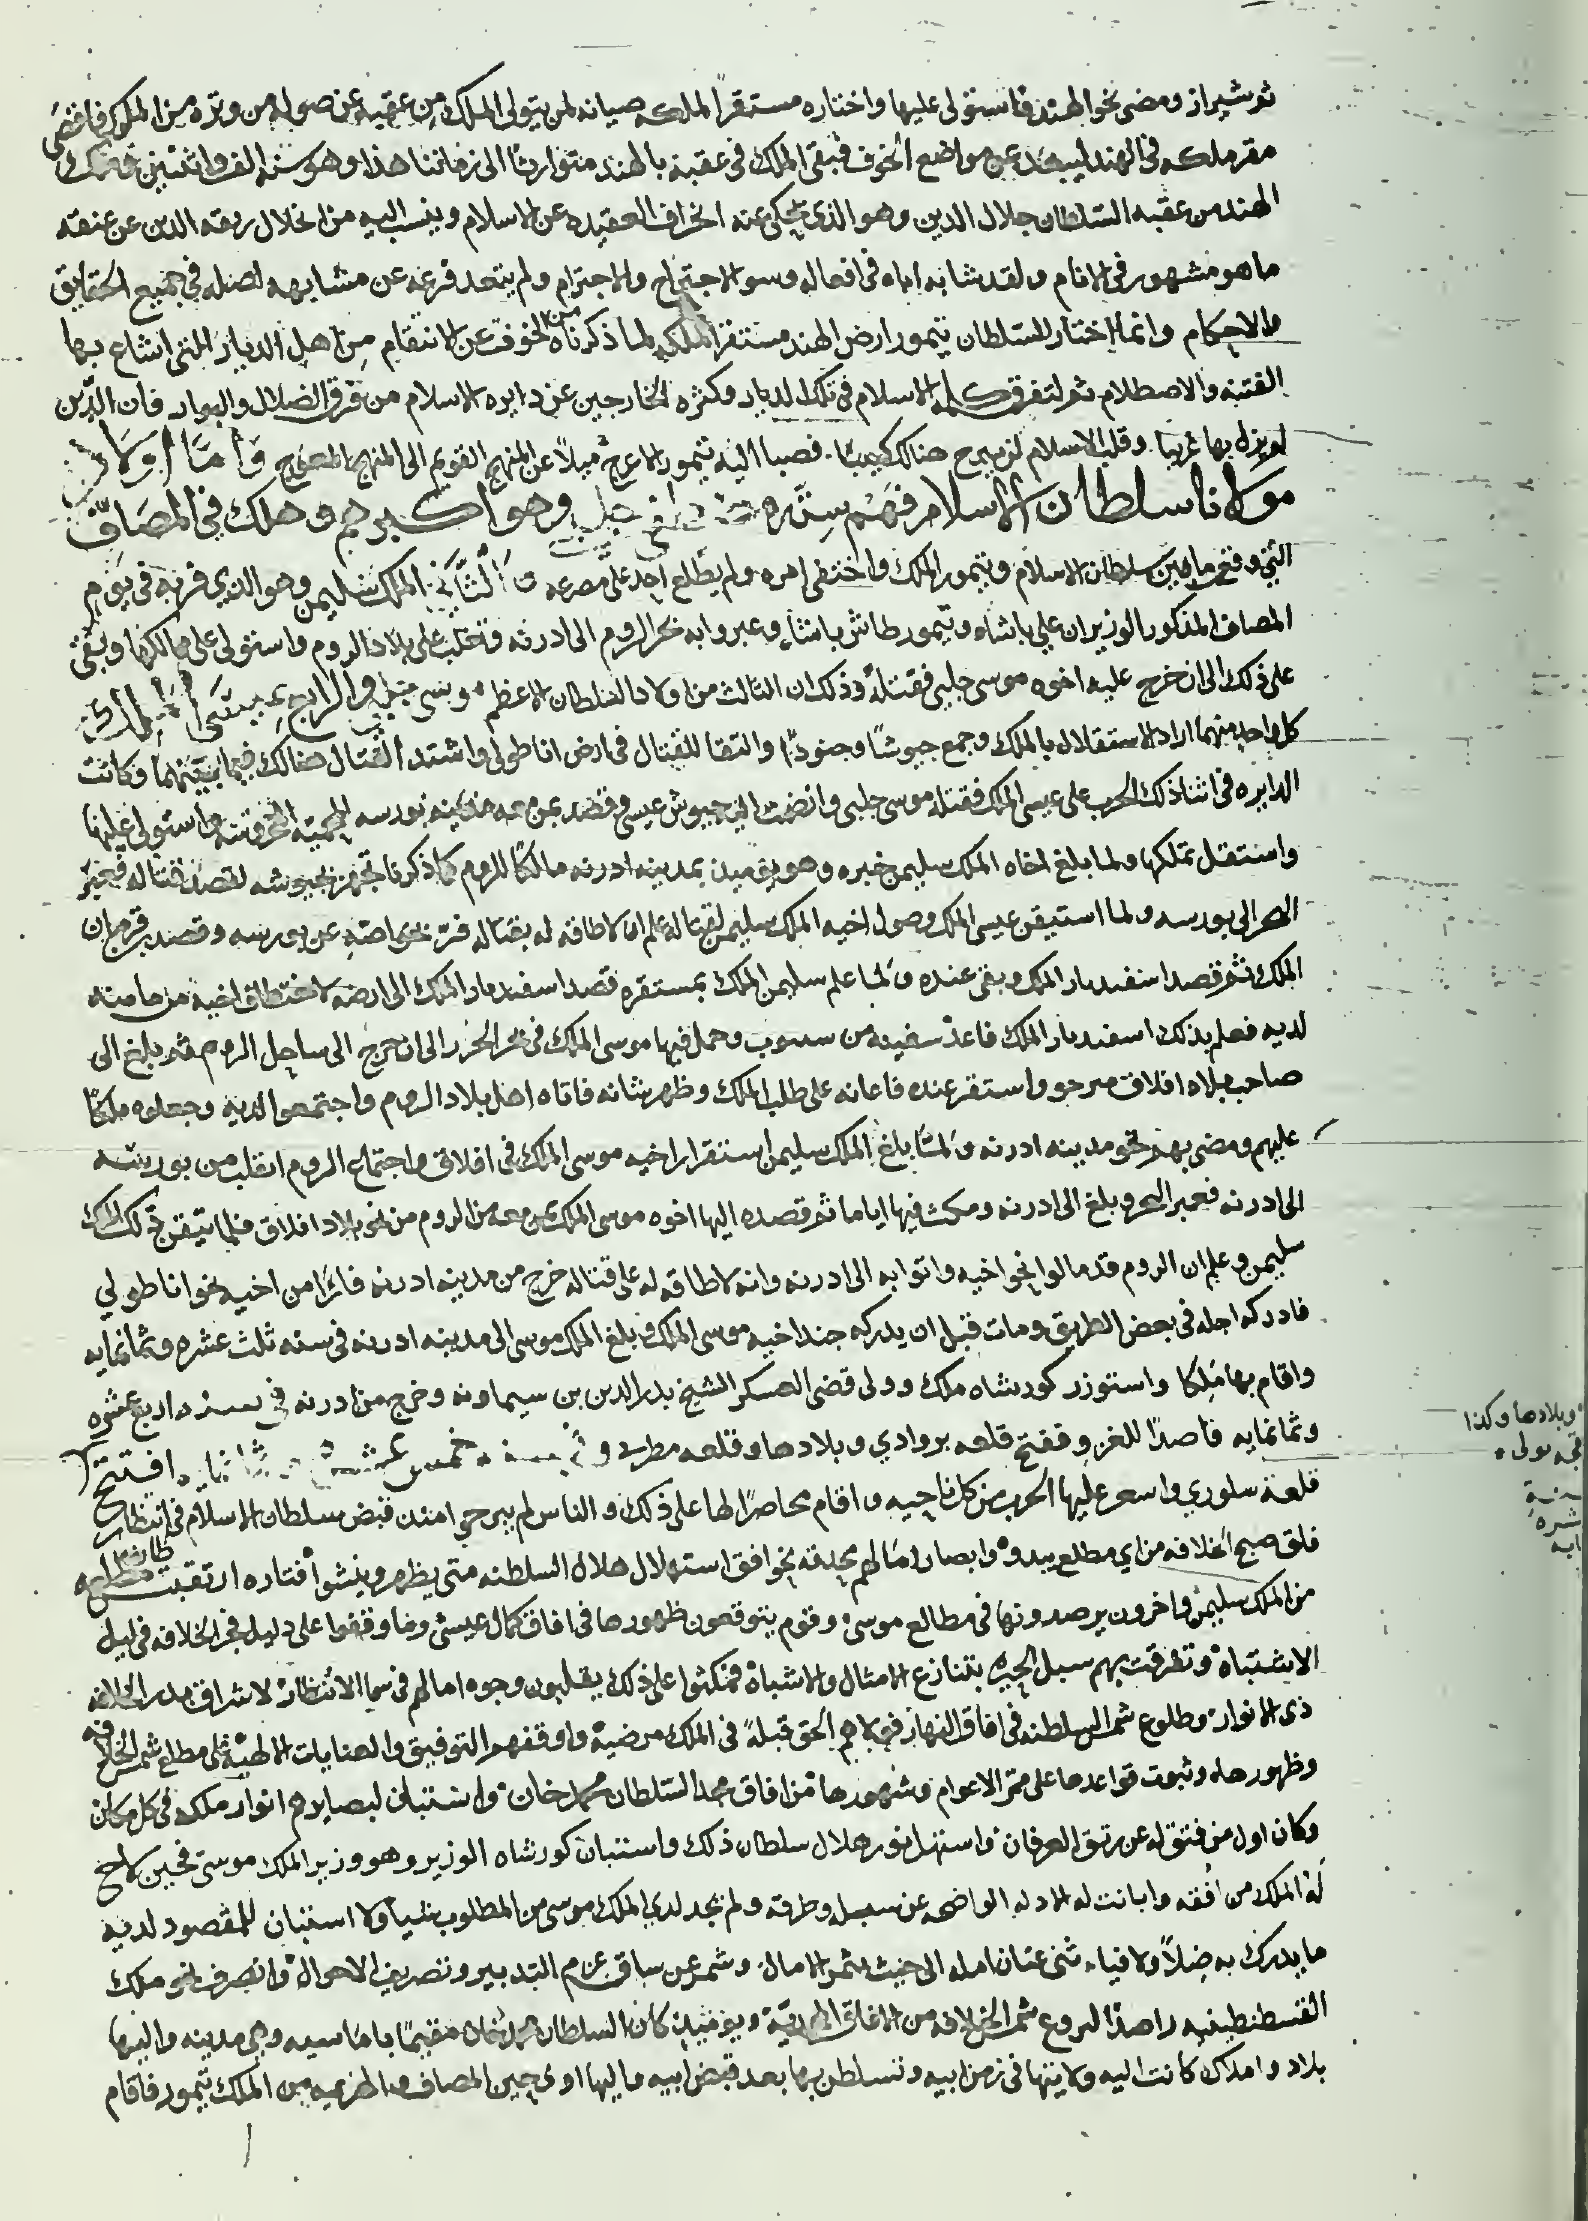 ثم شيراز ومضى نحو الهند فاستولى عليها واختاره مستقرا لملكه صيانه لمن يتولى الملك من عقبه عن صوله من وتره من الملوك فافضى
مقر ملكه فى الهند ليبعد عن مواضع الخوف فبقى الملك فى عقبه بالهند متوارثا الى زماننا هذا وهو سنه الف واثنتين
الهند من عقبه السلطان جلال الدين وهو الذى يحكى عنه انحراف العقيده عن الاسلام وينسب اليه من انحلال ربقه الدين عن عنقه
ما هو مشهور فى الانام ولقد شابه اباه فى افعاله وسو الاجتراح والاجترام ولم يتعد فرعه عن مشابهه اصله فى جميع الحقايق
والاحكام وانما اختار السلطان تيمور ارض الهند مستقرا لملكه لما ذكرناه من الخوف عن الانتقام من اهل الديار التى اشاع بها
الفتنه والاصطلام ثم لتفرق كلمه الاسلام فى تلك الديار وكثره الخارجين عن دايره الاسلام من فرق الضلال والبوار فان الدين
لم يزل بها غريبا وقلب الاسلام لن يبرح هنالك كئيبا فصبا اليه تيمور الاعرج ميلا عن المنهج القويم الى المنهج المعوج واما اولاد
مولانا سلطان الاسلام فهم سته مصطفى جلبى وهو اكبرهم وهلك فى المصاف
التى وقع ما بين سلطان الاسلام وتيمور الملك واختفى امره ولم يطلع احد على مصرعه والثانى الملك سليمن وهو الذي فر به فى يوم
المصاف المذكور الوزيران علي باشاه وتيمور طاش باشاء وعبروا به بحر الروم الى ادرنه فتغلب على بلاد الروم واستولى على ممالكها وبقى
على ذلك الى ان خرج عليه اخوه موسى جلبى فقتله وذلك ان الثالث من اولاد السلطان الاعظم موسى جلبى والرابع عيسى
كل واحد منهما اراد الاستقلال بالملك وجمع جيوشا وجنودا والتقا للقتال فى ارض اناطولى واشتد القتال هنالك فيما بينهما وكانت
الدايره فى اثنا ذلك الحرب على عيسى الملك فقتله موسى جلبى وانضمت اليه جيوش عيسى وقصد بمن معه مدينه بورسه المحميه المحروسه واستولى عليها
واستقل بملكها ولما بلغ اخاه الملك سليمن خبره وهو يوميذ بمدينه ادرنه مالكا للروم كما ذكرنا تجهز بجيوشه لقصد قتاله فعبر
البحر الى بورسه ولما استيقن عيسى الملك وصول اخيه الملك سليمن لقتاله علم ان لا طاقه له بقتاله فر بخواصه عن بورسه وقصد قرمان
الملك ثم قصد اسفنديار الملك وبقى عنده ولما علم سليمن الملك بمستقره قصد اسفنديار الملك الى ارضه لاختطاف اخيه من مامنه
لديه فعلم بذلك اسفنديار الملك فاعد سفينه من سينوب وحمل فيها موسى الملك فى بحر الخزر الى ان خرج الى ساحل الروم ثم بلغ الى
صاحب بلاد افلاق مرجو واستقر عنده فاعانه على طلب الملك وظهر شانه فاتاه اهل بلاد الروم واجتمعوا لديه وجعلوه ملكا
عليهم ومضى بهم نحو مدينه ادرنه ولما بلغ الملك سليمن استقرار اخيه موسى الملك فى افلاق واجتماع الروم انقلب من بورسه
الى ادرنه فعبر البحر وبلغ الى ادرنه ومكث فيها اياما ثم قصده اليها اخوه موسى الملك بمن معه من الروم من نحو بلاد افلاق فلما تيقن ذلك الملك
سليمن وعلم ان الروم قد مالوا نحو اخيه واتوا به الى ادرنه وانه لا طاقه له على قتاله خرج من مدينه ادرنه فارا من اخيه نحو اناطولي
فادركه اجله فى بعض الطريق ومات قبل ان يدركه جند اخيه موسى الملك وبلغ الملك موسى الى مدينه ادرنه فى سنه ثلث عشره وثمانمايه
واقام بها ملكا واستوزر كورشاه ملك وولى قضى العسكر الشيخ بدر الدين بن سيماونه وخرج من ادرنه فى سنه اربع عشره
وثمانمايه قاصدا للغزو ففتح قلعه بروادي وبلادها وقلعه مطرنى وفى سنه خمس عشره وثمانمايه افتتح
قلعة سلوري واسعر عليها الحرب من كل ناحيه واقام محاصرا لها على ذلك والناس لم يبرحو امنذ قبض سلطان الاسلام فى انتظار
فلق صبح الخلافه من اي مطلع يبدو وابصار امالهم محدقه نحو افق استهلال هلال السلطنه متى يظهر وينشوا فتاره ارتقبت طايفه مطلعه
من الملك سليمن واخرون يرصدونها فى مطالع موسى وقوم يتوقعون ظهورها فى افاق كمال عيسى وما وقفوا على دليل فجر الخلافه فى ليل
الاشتباه وتفرقت بهم سبل الحيره بتنازع الامثال والاشباه فمكثوا على ذلك يقلبون وجوه امالهم فى سما الانتظار لاشراق بدر الخلافه
ذى الانوار وطلوع شمس السلطنه فى افاق النهار فولاهم الحق قبلة فى الملك مرضيه واوقفهم التوفيق والعنايات الالهيه على مطلع شمس الخلافه
وظهورها وثبوت قواعدها على ممر الاعوام وشهورها من افاق مجد السلطان محمد خان واستبان لبصايرهم انوار ملكه فى كل مكان
وكان اول من فتق له عن رتق العرفان واستهل بنور هلال سلطان ذلك واستبان كورشاه الوزير وهو وزير الملك موسى فحين لاح
له الملك من افقه وابانت له الادله الواضحه عن سبيله وطرقه ولم يجد لدي الملك موسى من المطلوب شيا ولا استبان للمقصود لديه
ما يدرك به ضلا ولا فياء ثنى عنان امله الى حيث يثمر الامال وشمر عن ساق عزم التدبير وتصريف الاحوال وانصرف نحو ملك
القسطنطينيه راصدا لبزوغ شمس الخلافه من الافاق المحمديه ويوميذ كان السلطان محمد خان مقيما باماسيه وهى مدينه واليها
بلاد واملاك كانت اليه ولايتها فى زمن ابيه وتسلطن بها بعد قبض ابيه واليها اوى حين المصاف والهزيمه من الملك تيمور فاقام
وبلادها وكذا